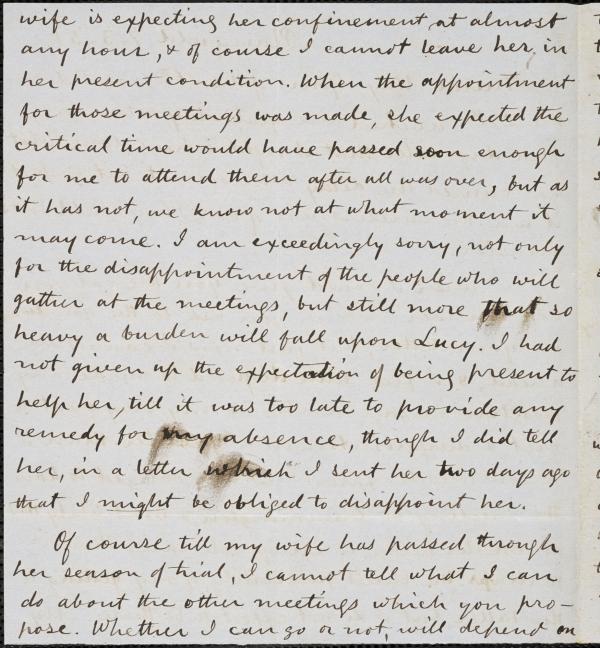 wife is expecting her confinement at almost
any hour, & of course I cannot leave her in
her present condition. When the appointment
for those meetings was made, she expected the
critical time would have passed soon enough
for me to attend them after all was over, but as
it has not, we know not at what moment it
may come. I am exceedingly sorry, not only
for the disappointment of the people who will
gather at the meetings, but still more that so
heavy a burden will fall upon Lucy. I had
not given up the expectation of being present to
help her, till it was too late to provide any
remedy for my absence, though I did tell
her, in a letter which I sent her two days ago
that I might be obliged to disappoint her.
Of course till my wife has passed through
her season of trial, I cannot tell what I can
do about the other meetings which you pro-
pose. Whether I can go or not, will depend on